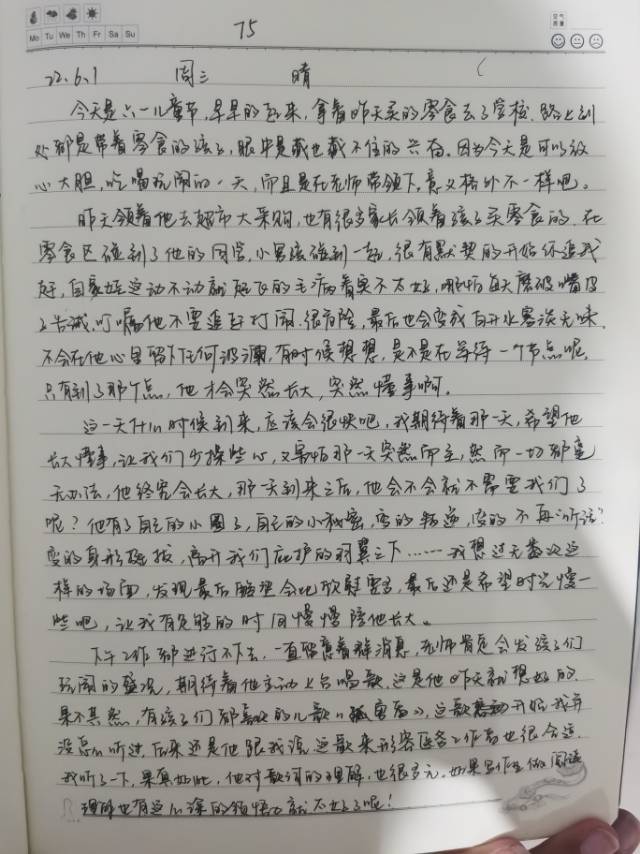 75
Mo Tu We Th Fr Sa Su
空气质量
22.6.1 周三 晴
今天是六一儿童节,早早的起来,拿着昨天买的零食去了学校,路上到
处都是带着零食的孩子,眼中是藏也藏不住的兴奋。因为今天是可以放
心大胆,吃喝玩闹的一天,而且是在老师带领下,意义格外不一样吧。
昨天领着他去超市大采购,也有很多家长领着孩子买零食的,在
零食区碰到了他的同学,小男孩碰到一起,很有默契的开始你追我
赶,自家娃这动不动就起飞的毛病着实不太好,哪怕每天磨破嘴皮
子告诫,叮嘱他不要追赶打闹,很危险,最后也会变成白开水寡淡无味,
不会在他心里留下任何波澜,有时候想想,是不是在等待一个节点呢,
只有到了那个点,他才会突然长大,突然懂事啊。
这一天什么时候到来,应该会很快吧,我期待着那一天,希望他
长大懂事,让我们少操些心,又害怕那一天突然而至,然而一切都毫
无办法,他终究会长大,那一天到来之后,他会不会就不需要我们了
呢?他有了自己的小圈子,自己的小秘密,变的叛逆,变的不再“听话”
变的身形挺拔,离开我们庇护的羽翼之下……我想过无数次这
样的场面,发现最后酸涩会比欣慰更多,最后还是希望时光慢一
些吧,让我有足够的时间慢慢陪他长大。
下午工作都进行不下去,一直留意着群消息,老师肯定会发孩子们
玩闹的盛况,期待着他主动上台唱歌,这是他昨天就想好的,
果不其然,有孩子们都喜欢的儿歌《孤勇者》,这歌开始我并
没怎么听过,后来还是他跟我说这歌来形容医务工作者也很合适,
我听了一下,果真如此,他对歌词的理解,也很多元,如果写作业做阅读
理解也有这么深的领悟力就太好了呢!